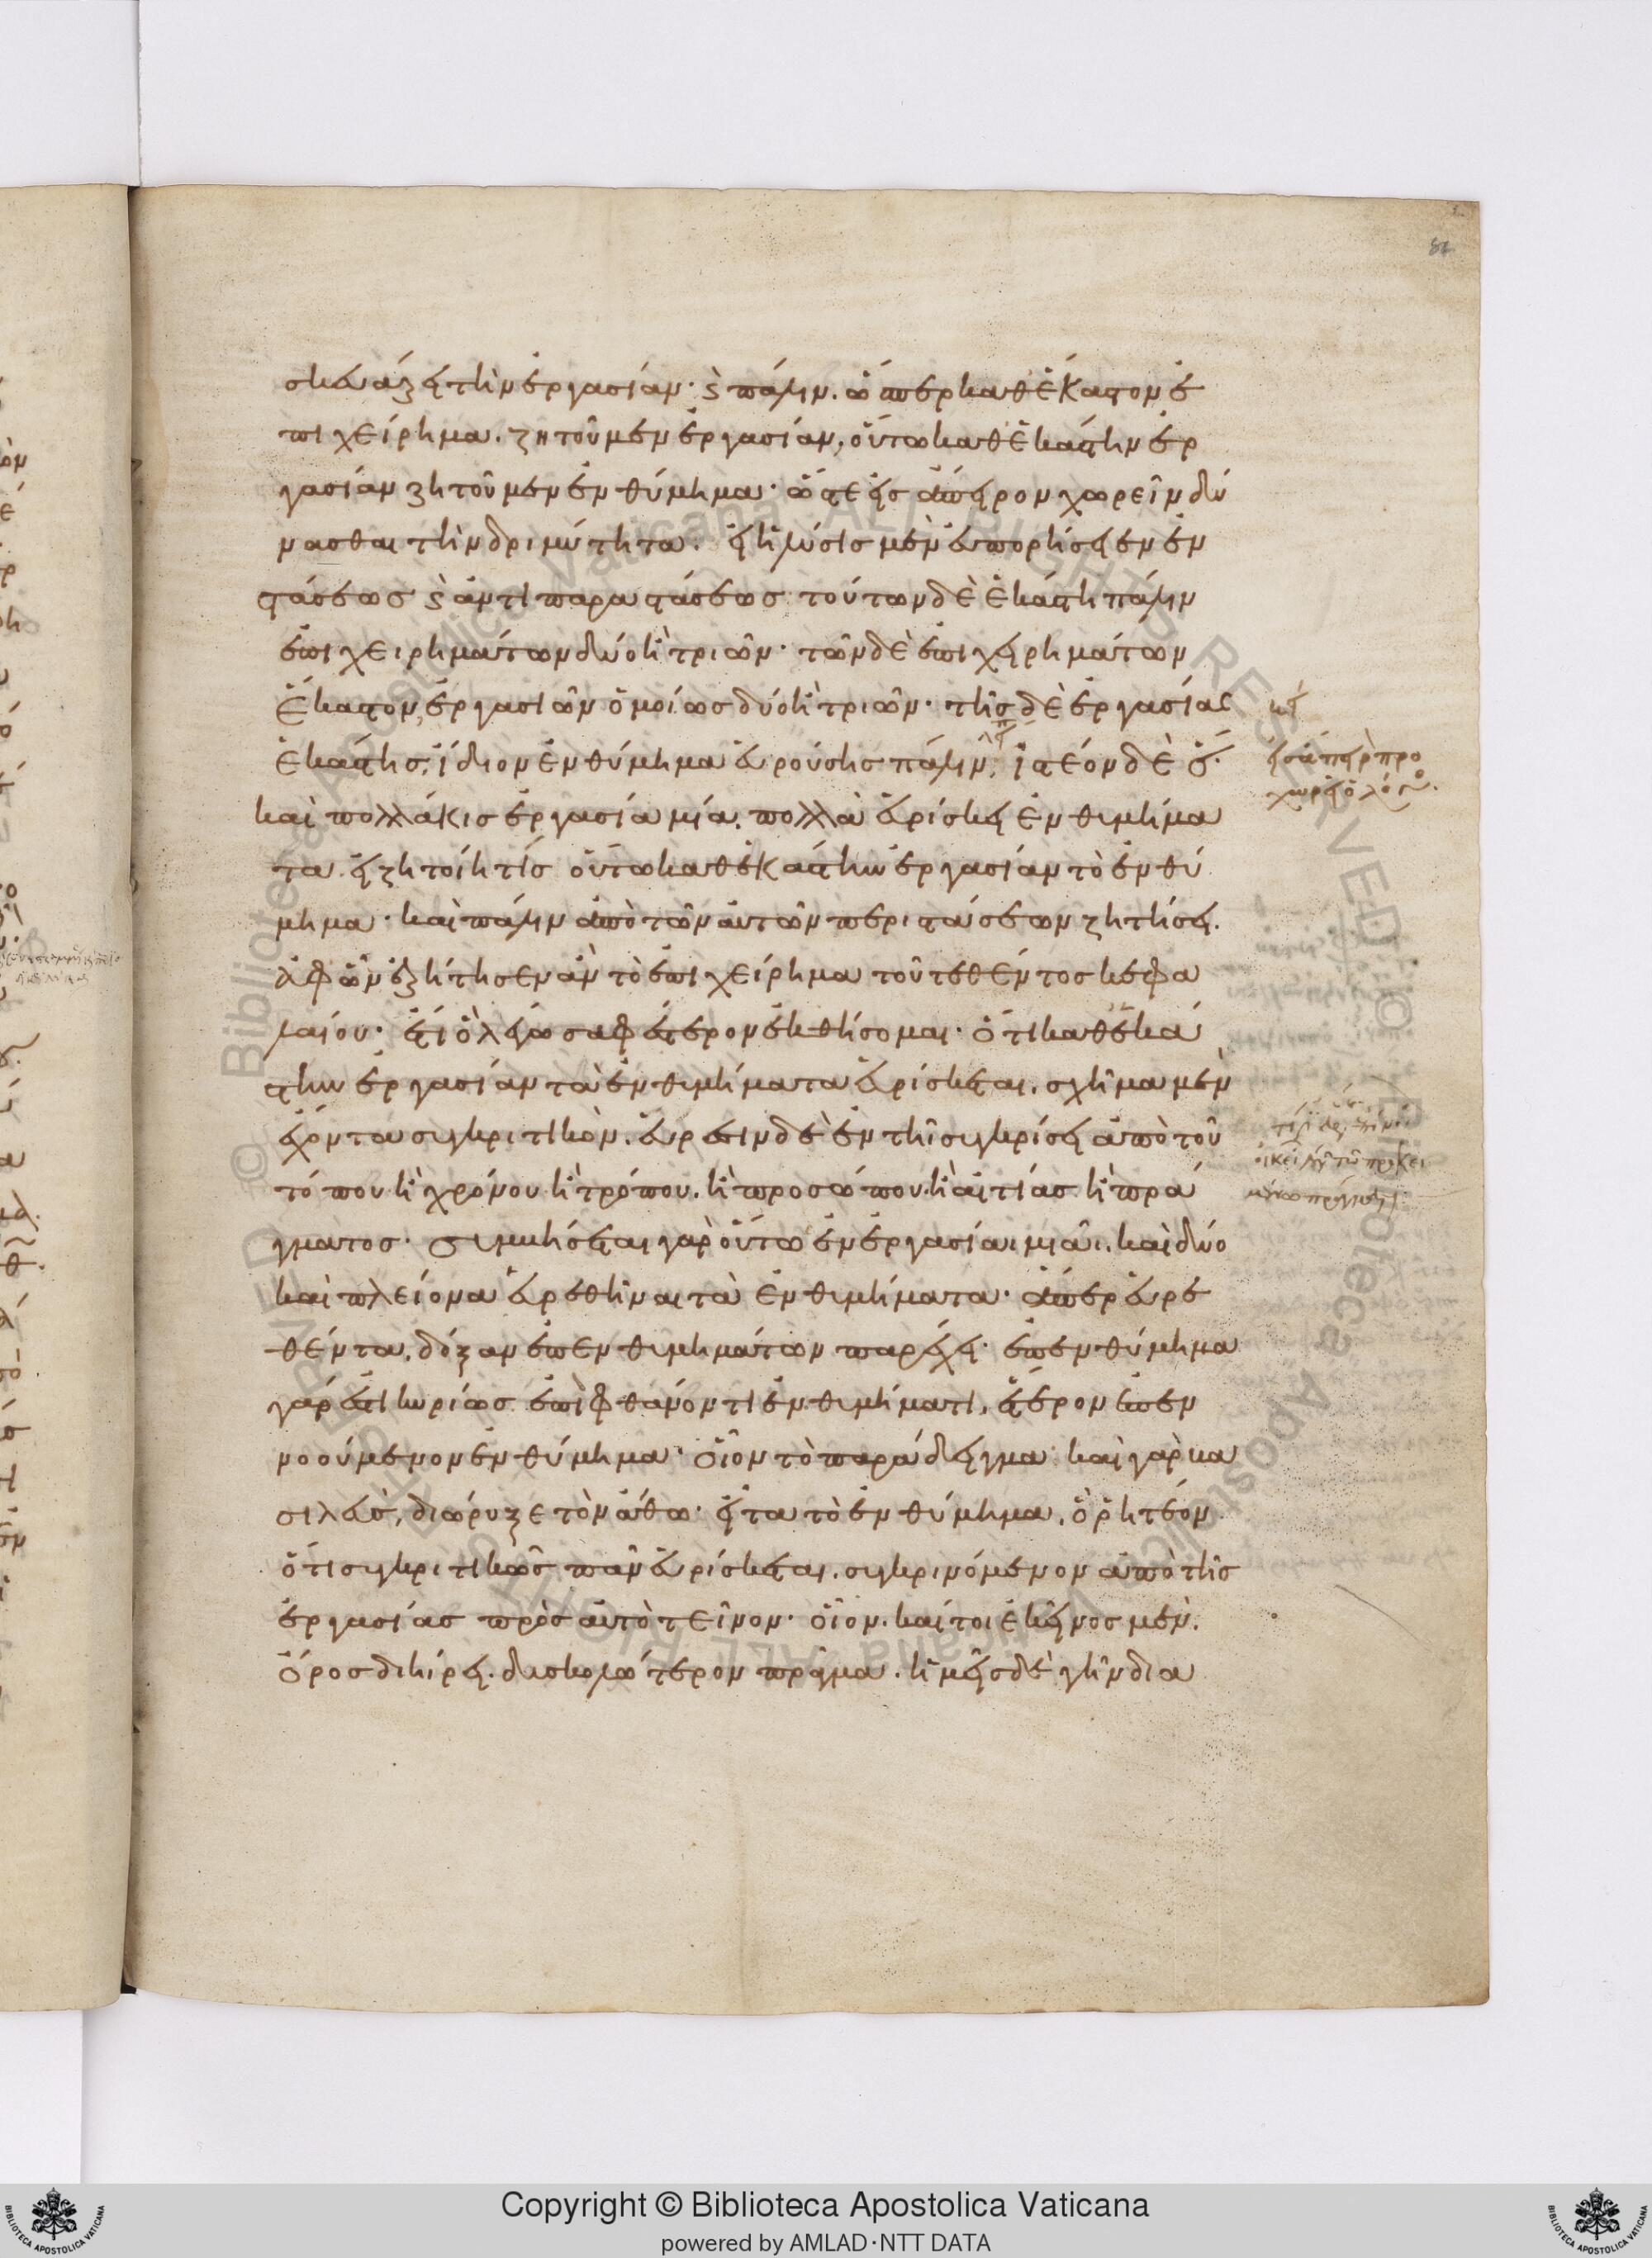 σκευάζει τὴν ἐργασίαν· καὶ πάλιν. ὥσπερ καθ' ἕκαστον ἐ
πιχείρημα. ζητοῦμεν ἐργασίαν, οὕτω καθ' ἑκάστην ἐρ
γασίαν ζητοῦμεν ἐνθύμημα· ὥστε εἰς ἄπειρον χωρεῖν δύ
νασθαι τὴν δριμύτητα. εἰ ἡ λύσις μὲν εὐπορήσειεν ἐν
στάσεως καὶ ἀντιπαραστάσεως· τούτων δὲ ἑκάστη πάλιν
ἐπιχειρημάτων δύο ἢ τριῶν· τῶν δὲ ἐπιχειρημάτων
ἕκαστον, ἐργασιῶν ὁμοίως δύο ἢ τριῶν· τῆς δὲ ἐργασίας
ἑκάστης, ἴδιον ἐνθύμημα εὑρούσης πάλιν, ἰστέον δὲ ὅτι
καὶ πολλάκις ἐργασία μία. πολλὰ εὑρίσκει ἐνθυμήμα
τα. εἰ ζητοίη τίς οὕτω καθ' ἑκάστην ἐργασίαν τὸ ἐνθύ
μημα· καὶ πάλιν ἀπὸ τῶν αὐτῶν περιστάσεων ζητήσει.
ἀφ' ὧν ἐζήτησεν ἂν τὸ ἐπιχείρημα τοῦ τεθέντος κεφα
λαίου· ἔτι ὃ λέγω σαφέστερον ἐκθήσομαι· ὅτι καθ' ἑκά
στην ἐργασίαν τὰ ἐνθυμήματα εὑρίσκεται. σχῆμα μὲν
ἔχοντα συγκριτικὸν. εὕρεσιν δὲ ἐν τῆι συγκρίσει ἀπὸ τοῦ
τόπου ἢ χρόνου ἢ τρόπου. ἢ προσώπου. ἢ αἰτίας ἢ πρά
γματος· συμβήσεται γὰρ οὕτω ἐν ἐργασίαι μιᾶι. καὶ δύο
καὶ πλείονα εὑρεθῆναι τὰ ἐνθυμήματα· ἅπερ εὑρε
θέντα. δόξαν ἐπενθυμημάτων παρέχει· ἐπενθύμημα
γάρ ἐστι κυρίως ἐπὶ φθάνοντι ἐνθυμήματι, ἕτερον ἐπεν
νοούμενον ἐνθύμημα· οἷον τὸ παράδειγμα· καὶ γὰρ βα
σιλεὺς, διώρυξε τὸν ἄθω· εἶτα τὸ ἐνθύμημα, ὃ ῥητέον
ὅτι συγκριτικῶς πᾶν εὑρίσκεται. συγκρινόμενον ἀπὸ τῆς
ἐργασίας πρὸς αὐτὸ τεῖνον· οἷον. καίτοι ἐκεῖνος μὲν.
ὄρος διήιρει. δυσκολώτερον πρᾶγμα. ἡμεῖς δὲ γῆν δια
εἰς ἄπειρον προ
χωρεῖ ὁ λόγος.